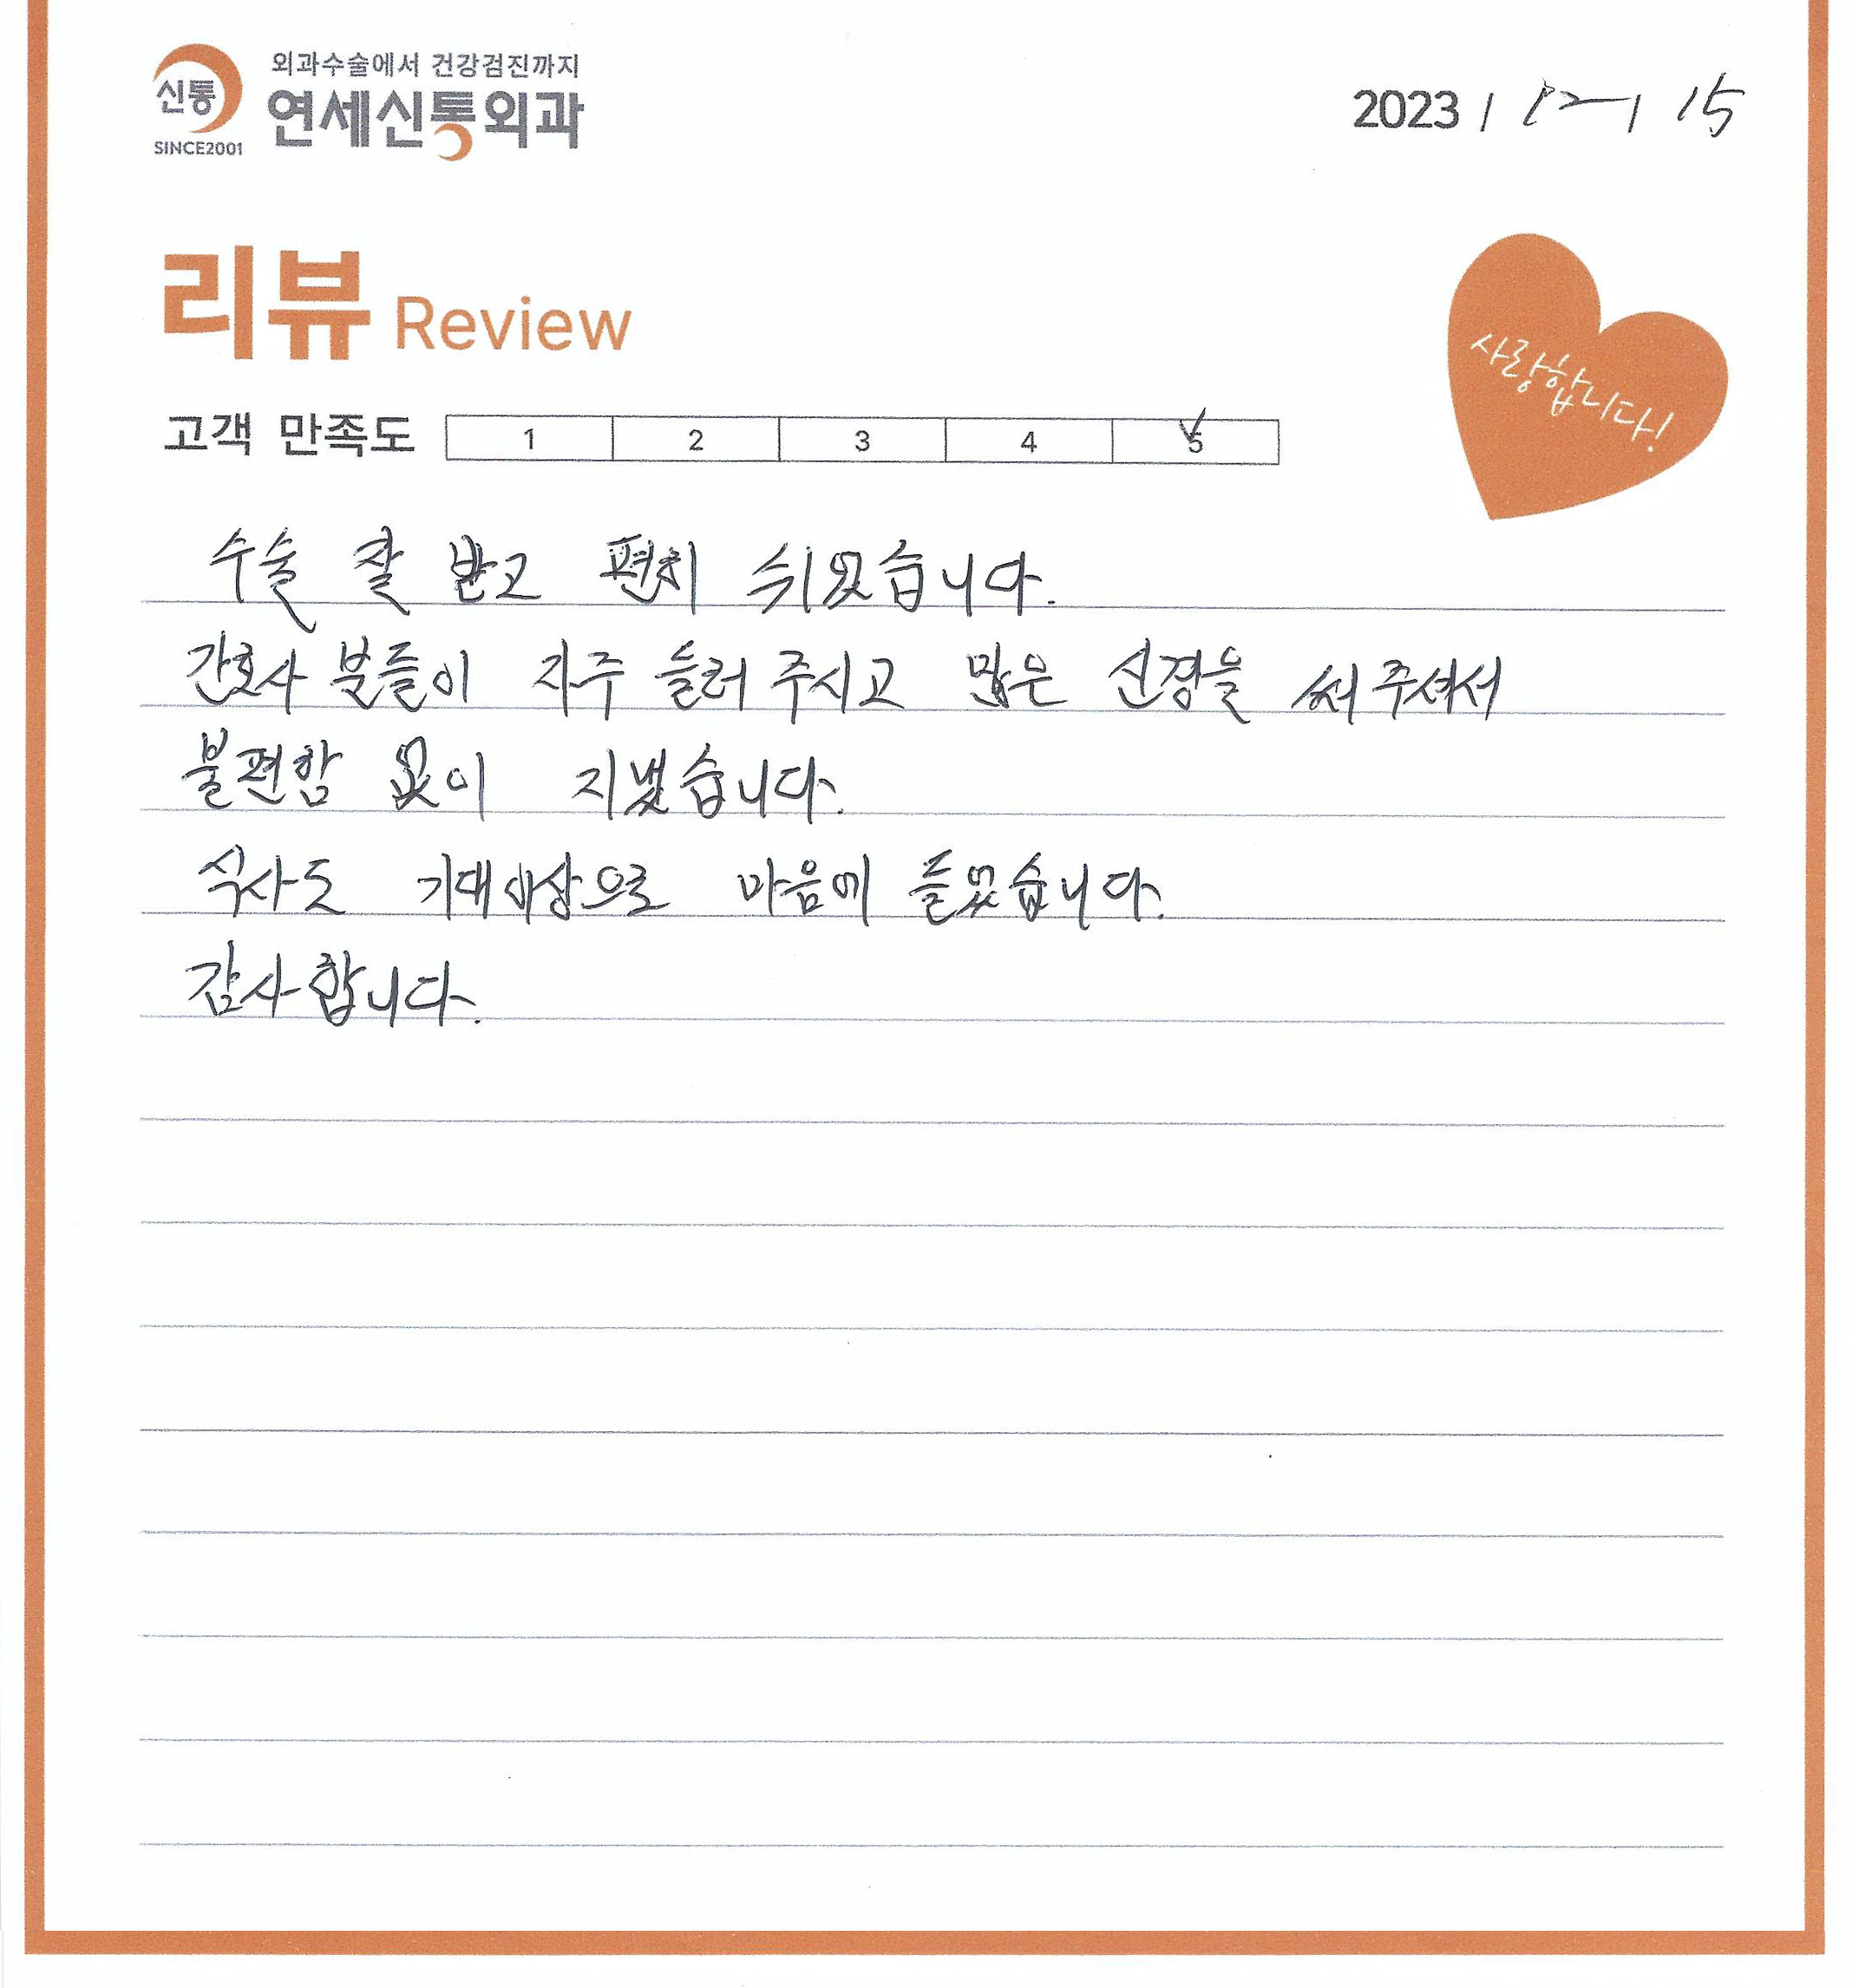 외과수술에서 건강검진까지
신통
연세신통외과
SINCE2001
2023 / 12 / 15
리뷰 Review
사랑합니다!
고객 만족도 1 2 3 4 5
수술 잘 받고 편히 쉬었습니다.
간호사 분들이 자주 들러 주시고 많은 신경을 써 주셔서
불편함 없이 지냈습니다.
식사도 기대이상으로 마음에 들었습니다.
감사합니다.